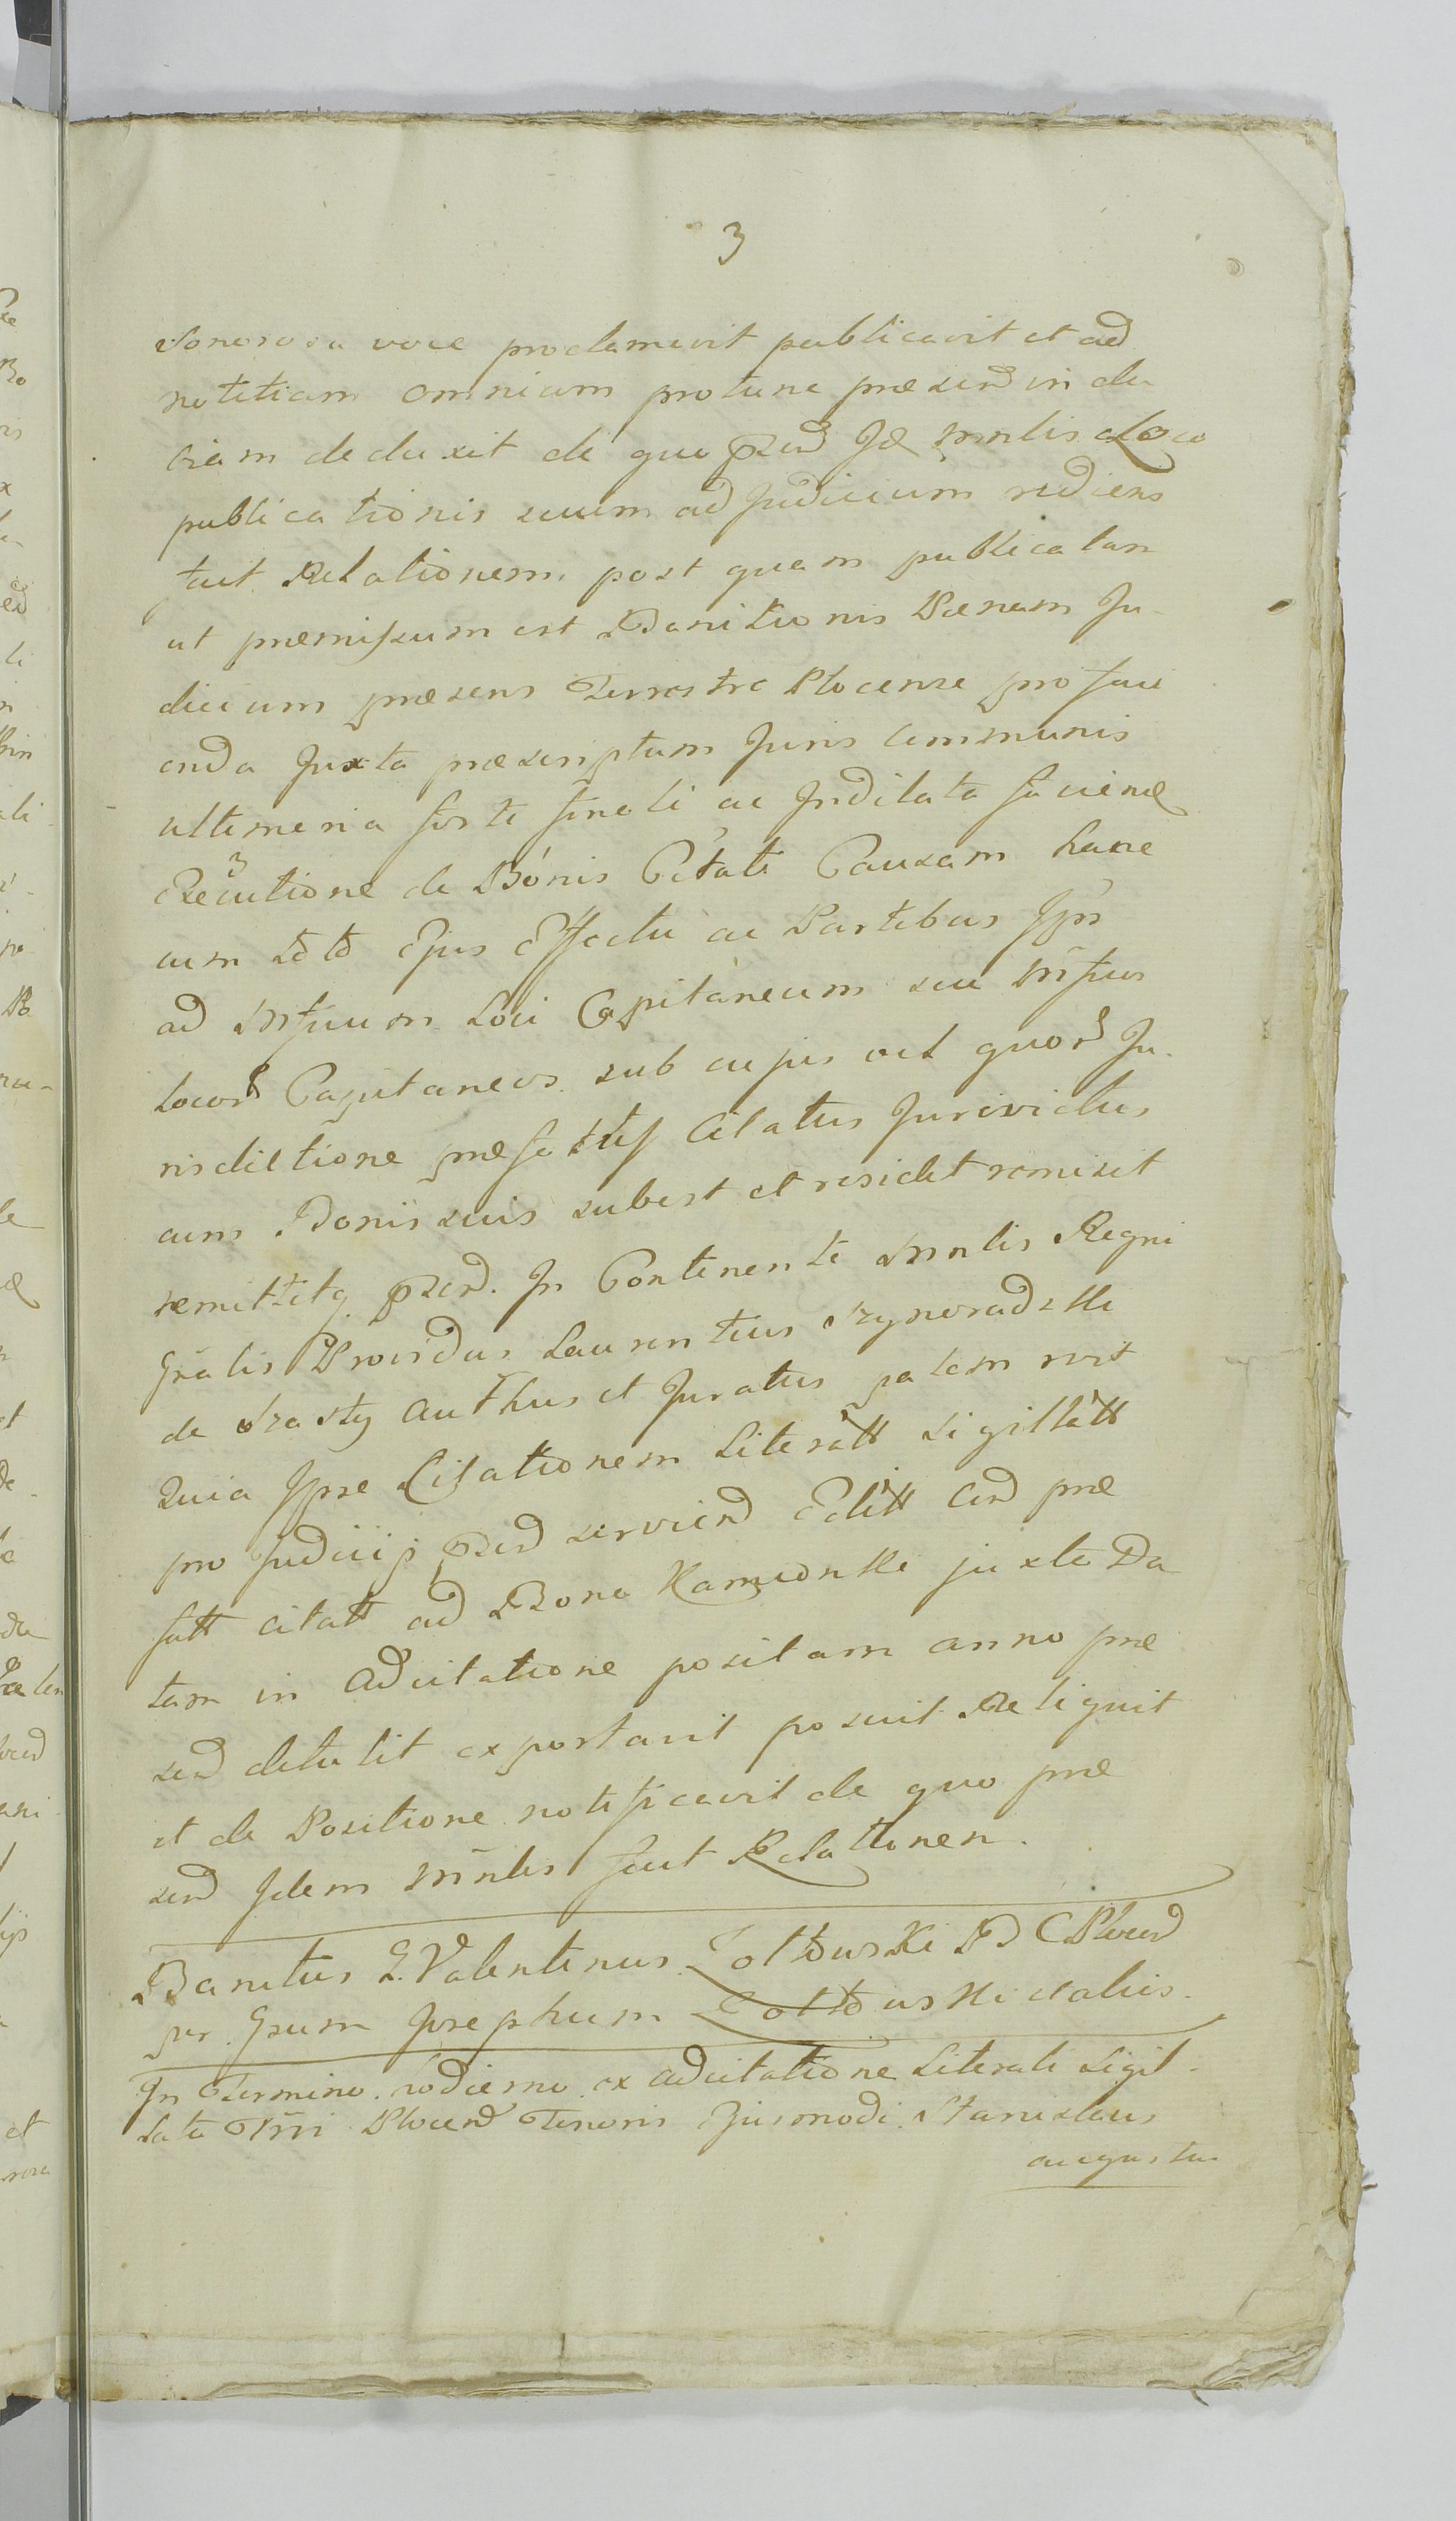 3
Sonorosa voce proclamavit publicavit et ad
notitiam omnium protunc præsend in du
ciam deduxit de quo præd Id Mnlis a Loco
publicationis suum ad Judicium rediens
fecit Relationem post quam publicatam
ut præmissum est Banitionis Pænam Ju-
dicium præsens Terrestre Plocense pro faci
enda Juxta præscriptum Juris Communis
ultimaria forti finali ac Indilata faciend
Executione de Bonis Citati Causam hanc
cum toto Ejus Effectu ac Partibus Ipis
ad Mfcum Loci Capitaneum seu Mfcos
locor Capitaneos sub cujus vel quor Ju-
risdictione præfattus Citatus Jurevictus
cum Bonis suis subest et residet remisit
remittitq præsen. In Continenti Mnlis Regni
Gnalis Providus Laurentius
de authus et Juratus palam rvit
Quia Ipse Citationem Literatt Sigillatt
pro Judiciis præd serviend Editt and præ
fatt citatt ad Bona Kamionki juxta Da
tam in Adcitatione positam anno præ
send detulit exportavit posuit Reliquit
et de Positione notificavit de quo præ
send Idem Mnlis fecit Relationem.
Banitus G. Valentinus Zołtowski P D C Plocen
per Gsum Josephum Zołtowski et aliis.
In Termino hodierno ex adcitatione Literali Sigil-
lata Trri Plocen Tenoris Ejusmodi Stanislaus
augustus